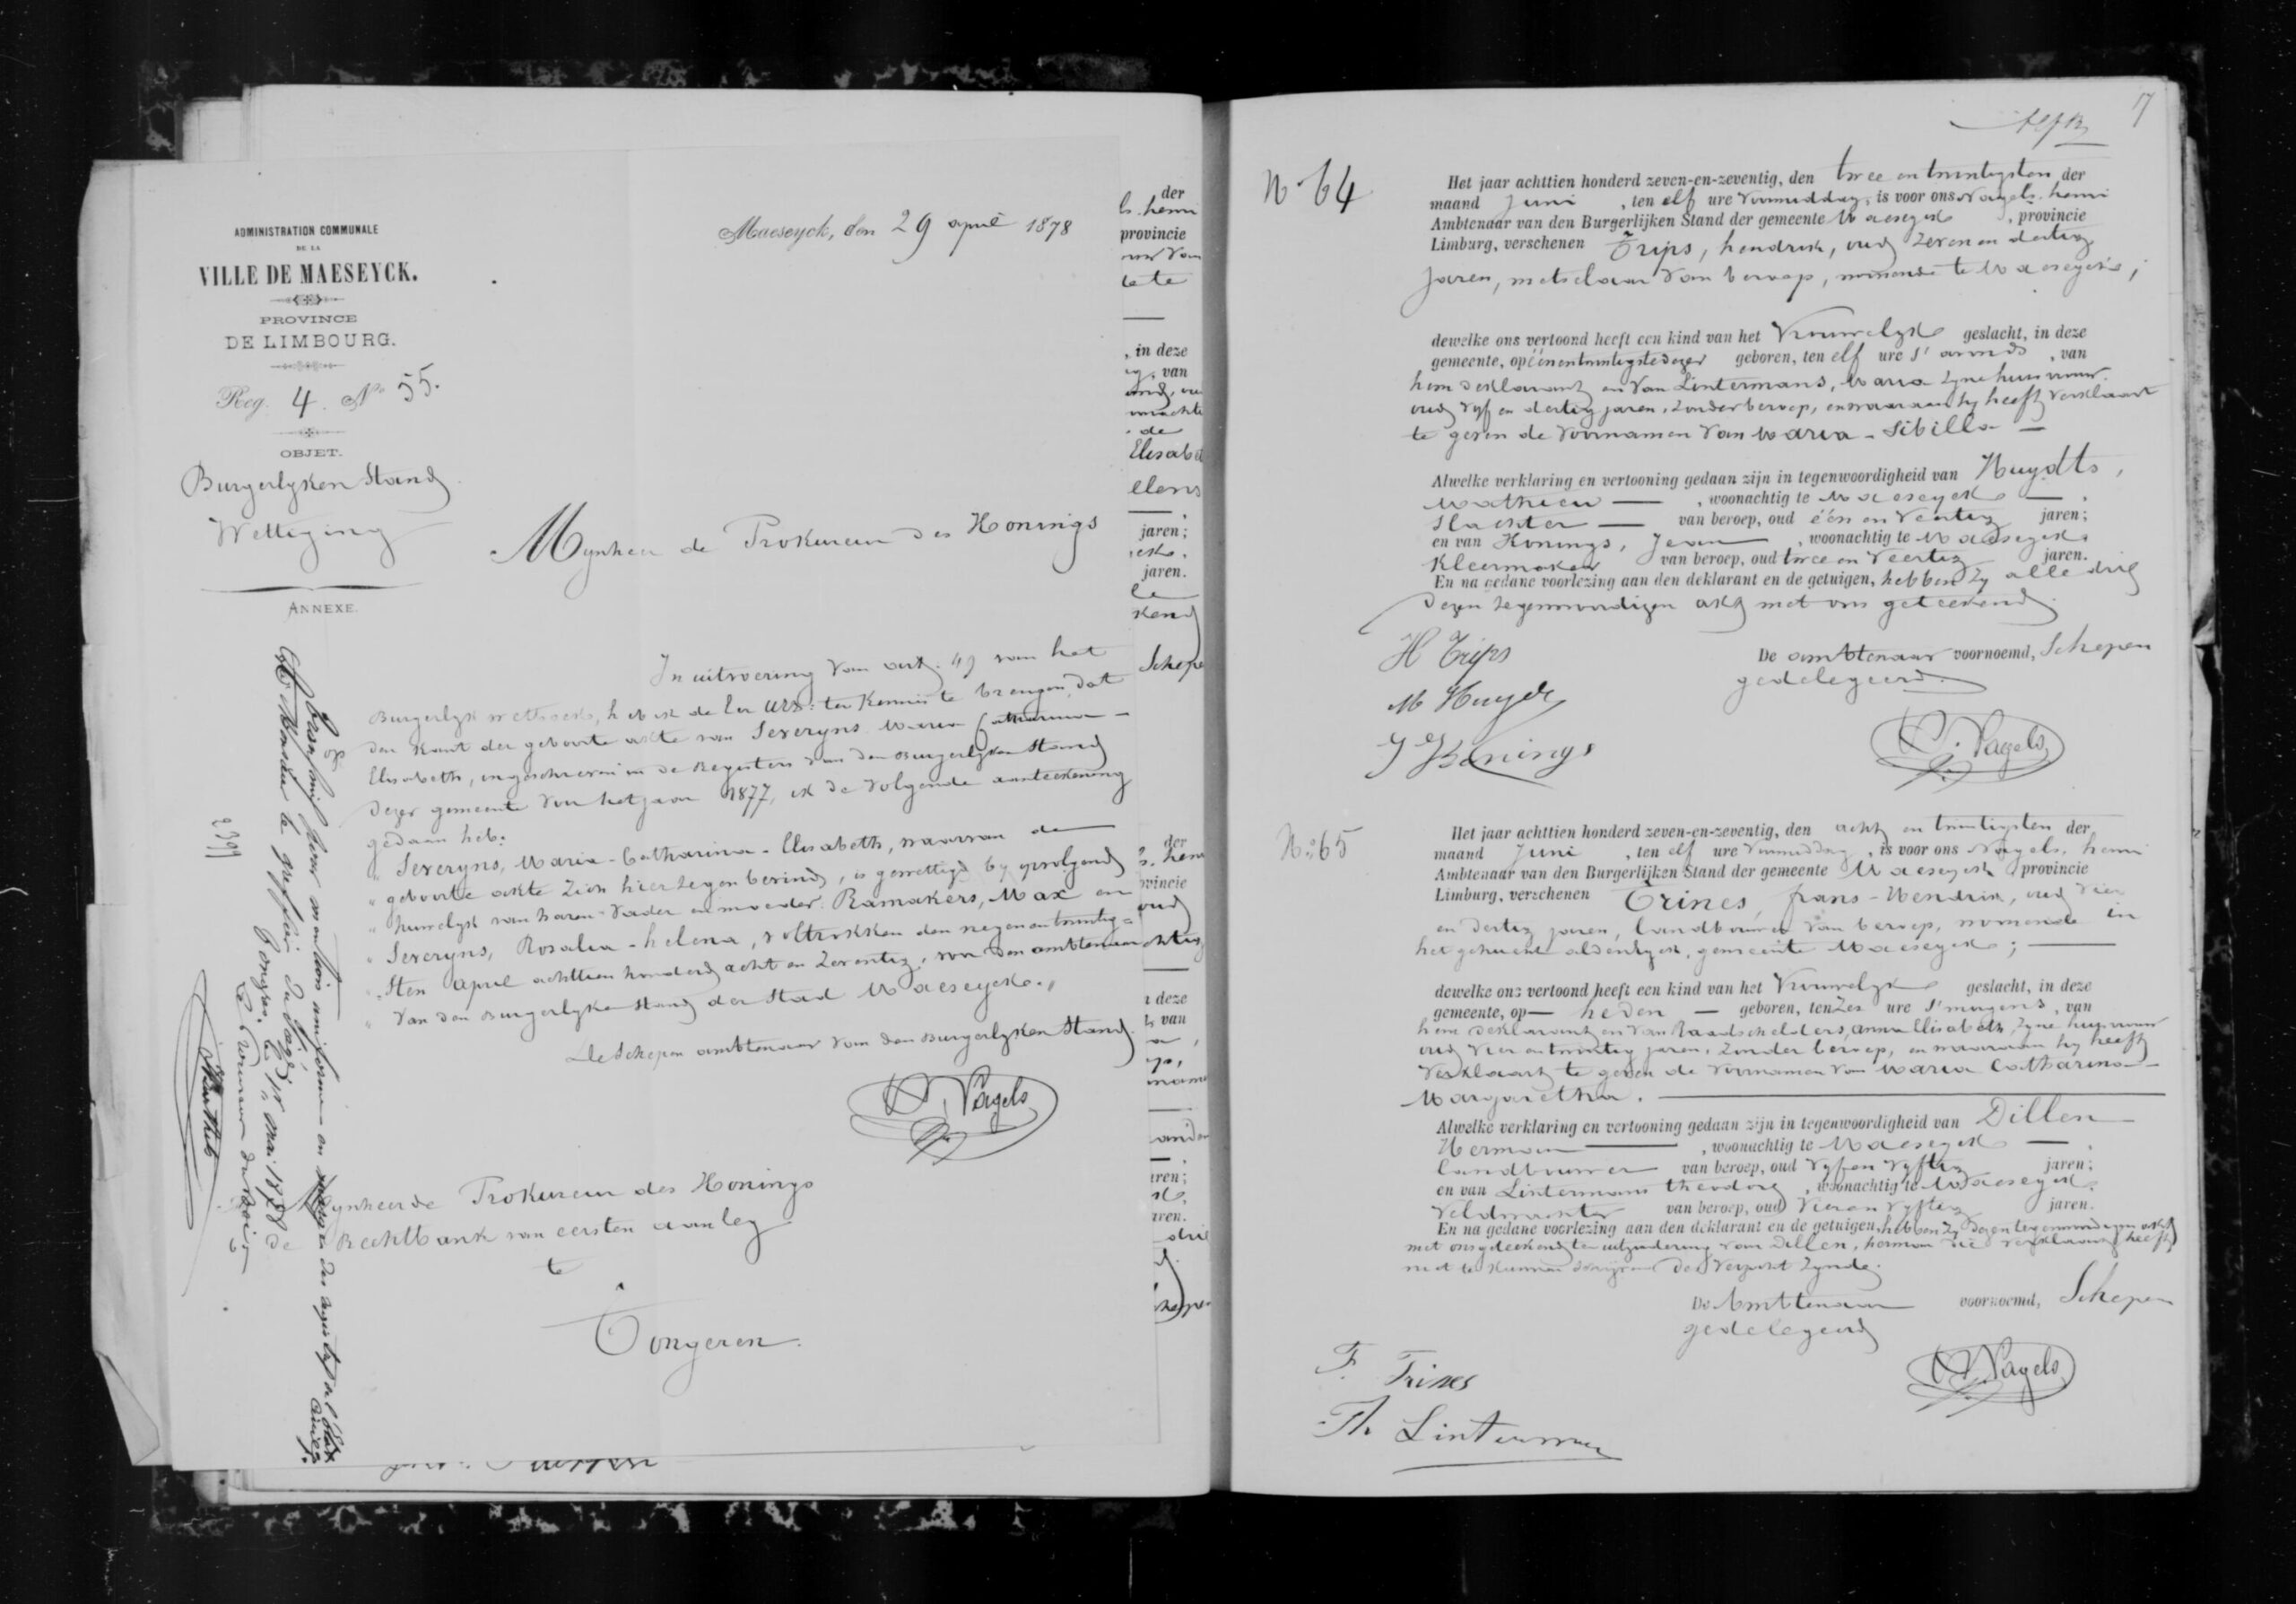 ADMINISTRATION COMMUNALE
DE LA
VILLE DE MAESEYCK.
PROVINCE
DE LIMBOURG.
Reg. 4. No 55.
OBJET.
Burgerlyken Stand
Wettiging
ANNEXE.
Maeseyck, den 29 april 1878
Mynheer de Prokureur des Konings
In uitvoering van art. 49 van het
Burgerlyk wetboek, heb ik de Eer UEd. ter kennis te brengen, dat
den kant der geboorte akte van Severyns Maria Catharina
Elisabeth, ingeschreven in de Registers van den Burgerlyken Stand
dezer gemeente voor het jaar 1877, ik de volgende aanteekening
gedaan heb:
" Severyns, Maria-Catharina-Elisabeth, waarvan de
" geboorte akte zich hiertegen bevind, is gewettigd by opvolgend
" huwelyk van haren vader en moeder: Ramakers, Max en
" Severyns, Rosalia-helena, voltrokken den negen en twintig=
" sten april achttien honderd acht en Zeventig, voor den ambtenaar
" van den Burgerlyken Stand der Stad Maeseyck."
De Schepen ambtenaar van den Burgerlyken Stand.
H. Nagels
Mynheer de Prokureur des Konings
de Rechtbank van eersten aanleg
te
Tongeren.
Transmis pour mention uniforme en marge des registres de l'état civil
à Monsieur le greffier du siège,
Tongres, le 1r mai 1878
Le Procureur du Roi
2399
der
ls. henri
provincie
te
, in deze
, van
de
Elisabet
jaren;
jaren.
kend
Schepe
der
s. henr
vincie
oud
n deze
van
aren;
aren.
drie
17
No 64
Het jaar achttien honderd zeven-en-zeventig, den twee en twintigsten der
maand Juni , ten elf ure voormiddag, is voor ons Nagels. henri
Ambtenaar van den Burgerlijken Stand der gemeente Maeseyck , provincie
Limburg, verschenen Trips, hendrik, oud Zeven en dertig
jaren, metselaar van beroep, wonende te Maeseyck;
dewelke ons vertoond heeft een kind van het Vrouwelyk geslacht, in deze
gemeente, op éénentwintigste dezer geboren, ten elf ure s' avonds , van
hem deklarant en van Lintermans, Maria zyne huisvrouw.
oud vyf en dertig jaren, zonder beroep, en waaraan hy heeft verklaart
te geven de voornamen van Maria-Sibilla —
Alwelke verklaring en vertooning gedaan zijn in tegenwoordigheid van Huydts,
Mathieu — , woonachtig te Maeseyck — ,
Slachter — van beroep, oud één en Veertig jaren;
en van Konings, Jean , woonachtig te Maeseyck.
Kleermaker van beroep, oud twee en Veertig jaren.
En na gedane voorlezing aan den deklarant en de getuigen, hebben zy alle drie
dezen tegenwoordigen akt met ons geteekend.
De ambtenaar voornoemd, Schepen
gedelegeerd.
H Trips
M Huydts
J Konings
H. Nagels
No 65
Het jaar achttien honderd zeven-en-zeventig, den acht en twintigsten der
maand Juni , ten elf ure Voormiddag , is voor ons Nagels. henri
Ambtenaar van den Burgerlijken Stand der gemeente Maeseyck , provincie
Limburg, verschenen Trines, frans-Hendrik, oud Vier
en dertig jaren, landbouwer van beroep, wonende in
het gehucht aldeneyck, gemeente Maeseyck; —
dewelke ons vertoond heeft een kind van het Vrouwelyk geslacht, in deze
gemeente, op — heden — geboren, ten Zes ure s' morgens , van
hem deklarant en van Raadschelders, anna Elisabeth, zyne huisvrouw
oud Vier en twintig jaren, zonder beroep, en waaraan hy heeft
verklaart te geven de voornamen van Maria Catharina-
Margaretha. —
Alwelke verklaring en vertooning gedaan zijn in tegenwoordigheid van Dillen
Herman — , woonachtig te Maeseyck — ,
landbouwer van beroep, oud vyf en vyftig jaren;
en van Lintermans theodoor , woonachtig te Maeseyck.
Veldwachter van beroep, oud Vier en Vyftig jaren.
En na gedane voorlezing aan den deklarant en de getuigen, hebben zy dezen tegenwoordigen akt
met ons geteekend ten uitzondering van Dillen, herman die verklaart heeft
niet te kunnen schryven des verzocht zynde.
De Ambtenaar voornoemd, Schepen
gedelegeerd
F. Trines
Th Linterman
H. Nagels